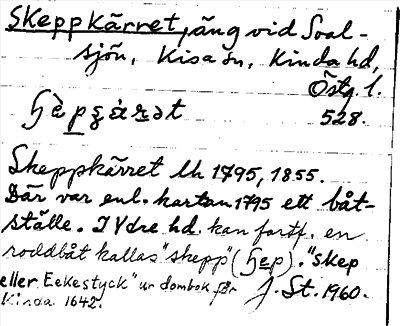 Skeppkärret, äng vid Soal-
sjön, Kisa sn, Kinda hd,
Östg. l.
528.
Skeppkärret lh 1795, 1855.
Där var enl. kartan 1795 ett båt-
ställe. I Ydre hd. kan fortf. en
roddbåt kallas "skepp" (). "Skep
eller Eekestyck" ur dombok för
Kinda 1642. J. St. 1960.